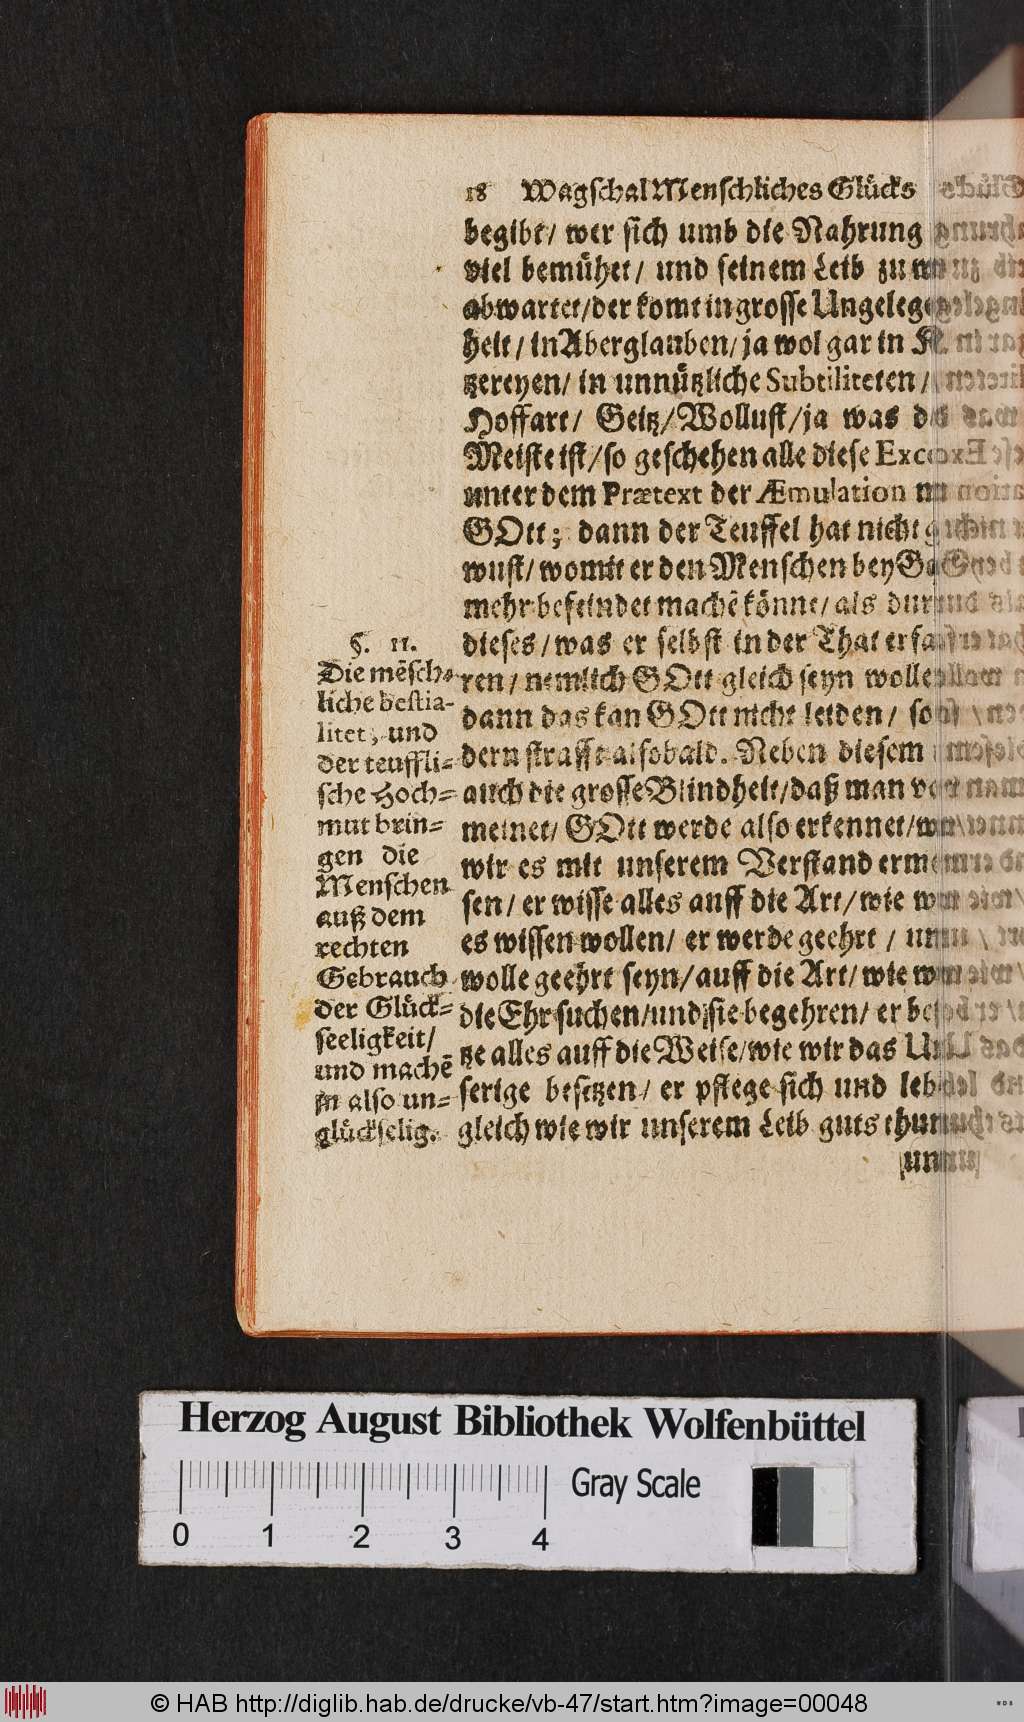 18 Wagschal Menschliches Glücks
begibt/ wer sich umb die Nahrung
viel bemühet/ und seinem Leib zu
abwartet/der komt in grosse Ungelege
heit/ in Aberglauben/ ja wol gar in
tzereyen/ in unnützliche Subtiliteten/
Hoffart/ Geitz/ Wollust/ja was
Meiste ist/so geschehen alle diese
unter dem Prætext der Æmulation
GOtt; dann der Teuffel hat nicht
wust/ womit er den Menschen bey
mehr befeindet machẽ könnt/ als
dieses/ was er selbst in der That
ren/ nemlich GOtt gleich seyn
dann das kan GOtt nicht leiden/
dern strafft alsobald. Neben diesem
auch die grosse Blindheit/daß man
meinet/ GOtt werde also erkennet/
wir es mit unserem Verstand
sen/ er wisse alles auff die Art/ wie
es wissen wollen/ er werde geehrt/
wolle geehrt seyn/ auff die Art/ wie
die Ehr suchen/und sie begehren/ er
tze alles auff die Weise/wie wir das
serige besetzen/ er pflege sich und
gleich wie wir unserem Leib guts
§. 11.
Die mẽsch-
liche bestia-
litet, und
der teuffli-
sche Hoch-
mut brin-
gen die
Menschen
auß dem
rechten
Gebrauch
der Glück-
seeligkeit/
und machẽ
jn also un-
glückselig.
Herzog August Bibliothek Wolfenbüttel
0 1 2 3 4
Gray Scale
© HAB http://diglib.hab.de/drucke/vb-47/start.htm?image=00048